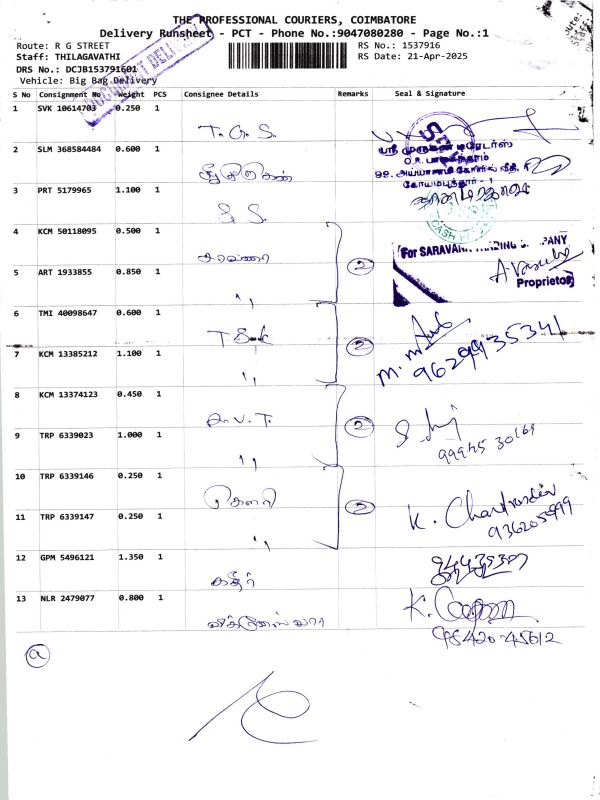 THE PROFESSIONAL COURIERS, COIMBATORE
Delivery Runsheet - PCT - Phone No.:9047080280 - Page No.:1
Route: R G STREET
RS No.: 1537916
Staff: THILAGAVATHI
RS Date: 21-Apr-2025
DRS No.: DCJB153791601
Vehicle: Big Bag Delivery
S No Consignment No Weight PCS Consignee Details Remarks Seal & Signature
1 SVK 10614703 0.250 1
2 SLM 368584484 0.600 1
ஸ்ரீ முருகன் டிரேடர்ஸ்
3 PRT 5179965 1.100 1 S. S.
கோயமுத்தூர் - 1
4 KCM 50118095 0.500 1 சரவணா
For SARAVANA TRADING COMPANY
5 ART 1933855 0.850 1 " 2
Proprietor
6 TMI 40098647 0.600 1 T.S.K
7 KCM 13385212 1.100 1 " 2 9629935341
8 KCM 13374123 0.450 1
9 TRP 6339023 1.000 1 " 2 99945 30169
10 TRP 6339146 0.250 1 கௌரி
11 TRP 6339147 0.250 1 " 2
12 GPM 5496121 1.350 1 கதிர்
13 NLR 2479077 0.800 1
98420-45612
a